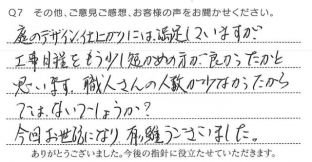 Q7 その他、ご意見ご感想、お客様の声をお聞かせください。
庭のデザイン仕上がりには、満足していますが
工事日程をもう少し短かめの方が良かったかと
思います。職人さんの人数が少なかったから
ではないでしょうか?
今回お世話になり有難うございました。
ありがとうございました。今後の指針に役立たせていただきます。